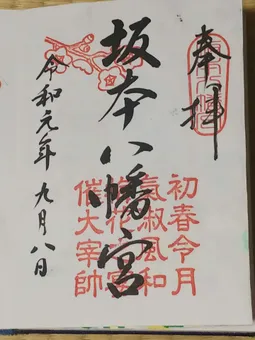 奉拝
坂本八幡宮
初春令月
氣淑風和
催大宰帥
令和元年九月八日